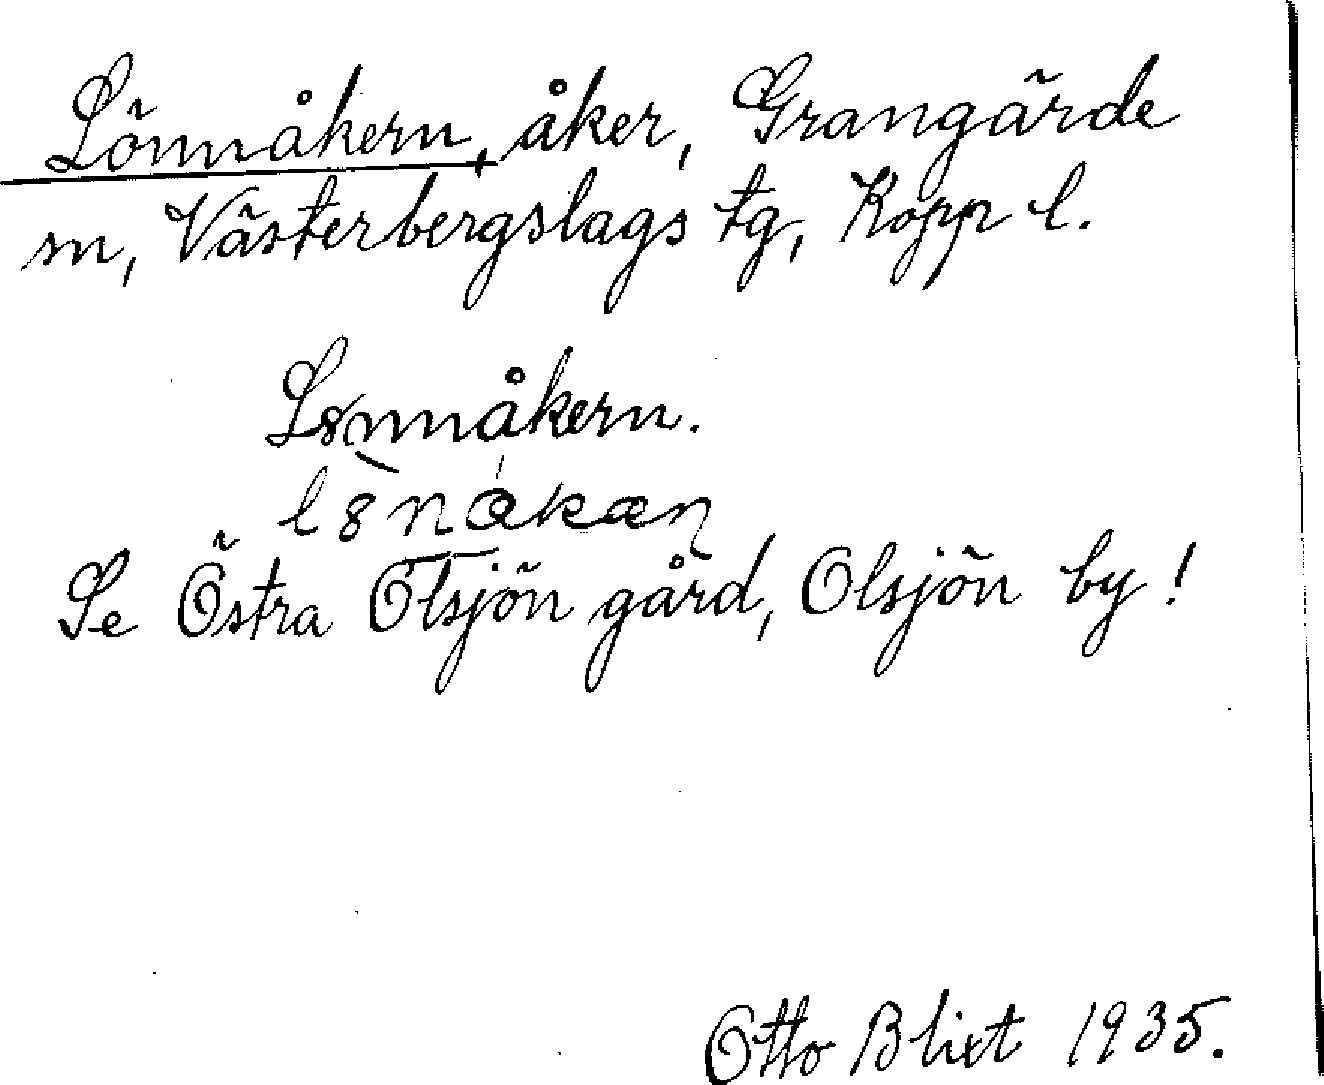 Lönnåkern, åker, Grangärde
sn, Västerbergslags tg, Kopp l.
L8nnåkern.
l8̀nákæn
Se Östra Olsjön gård, Olsjön by!
Otto Blixt 1935.